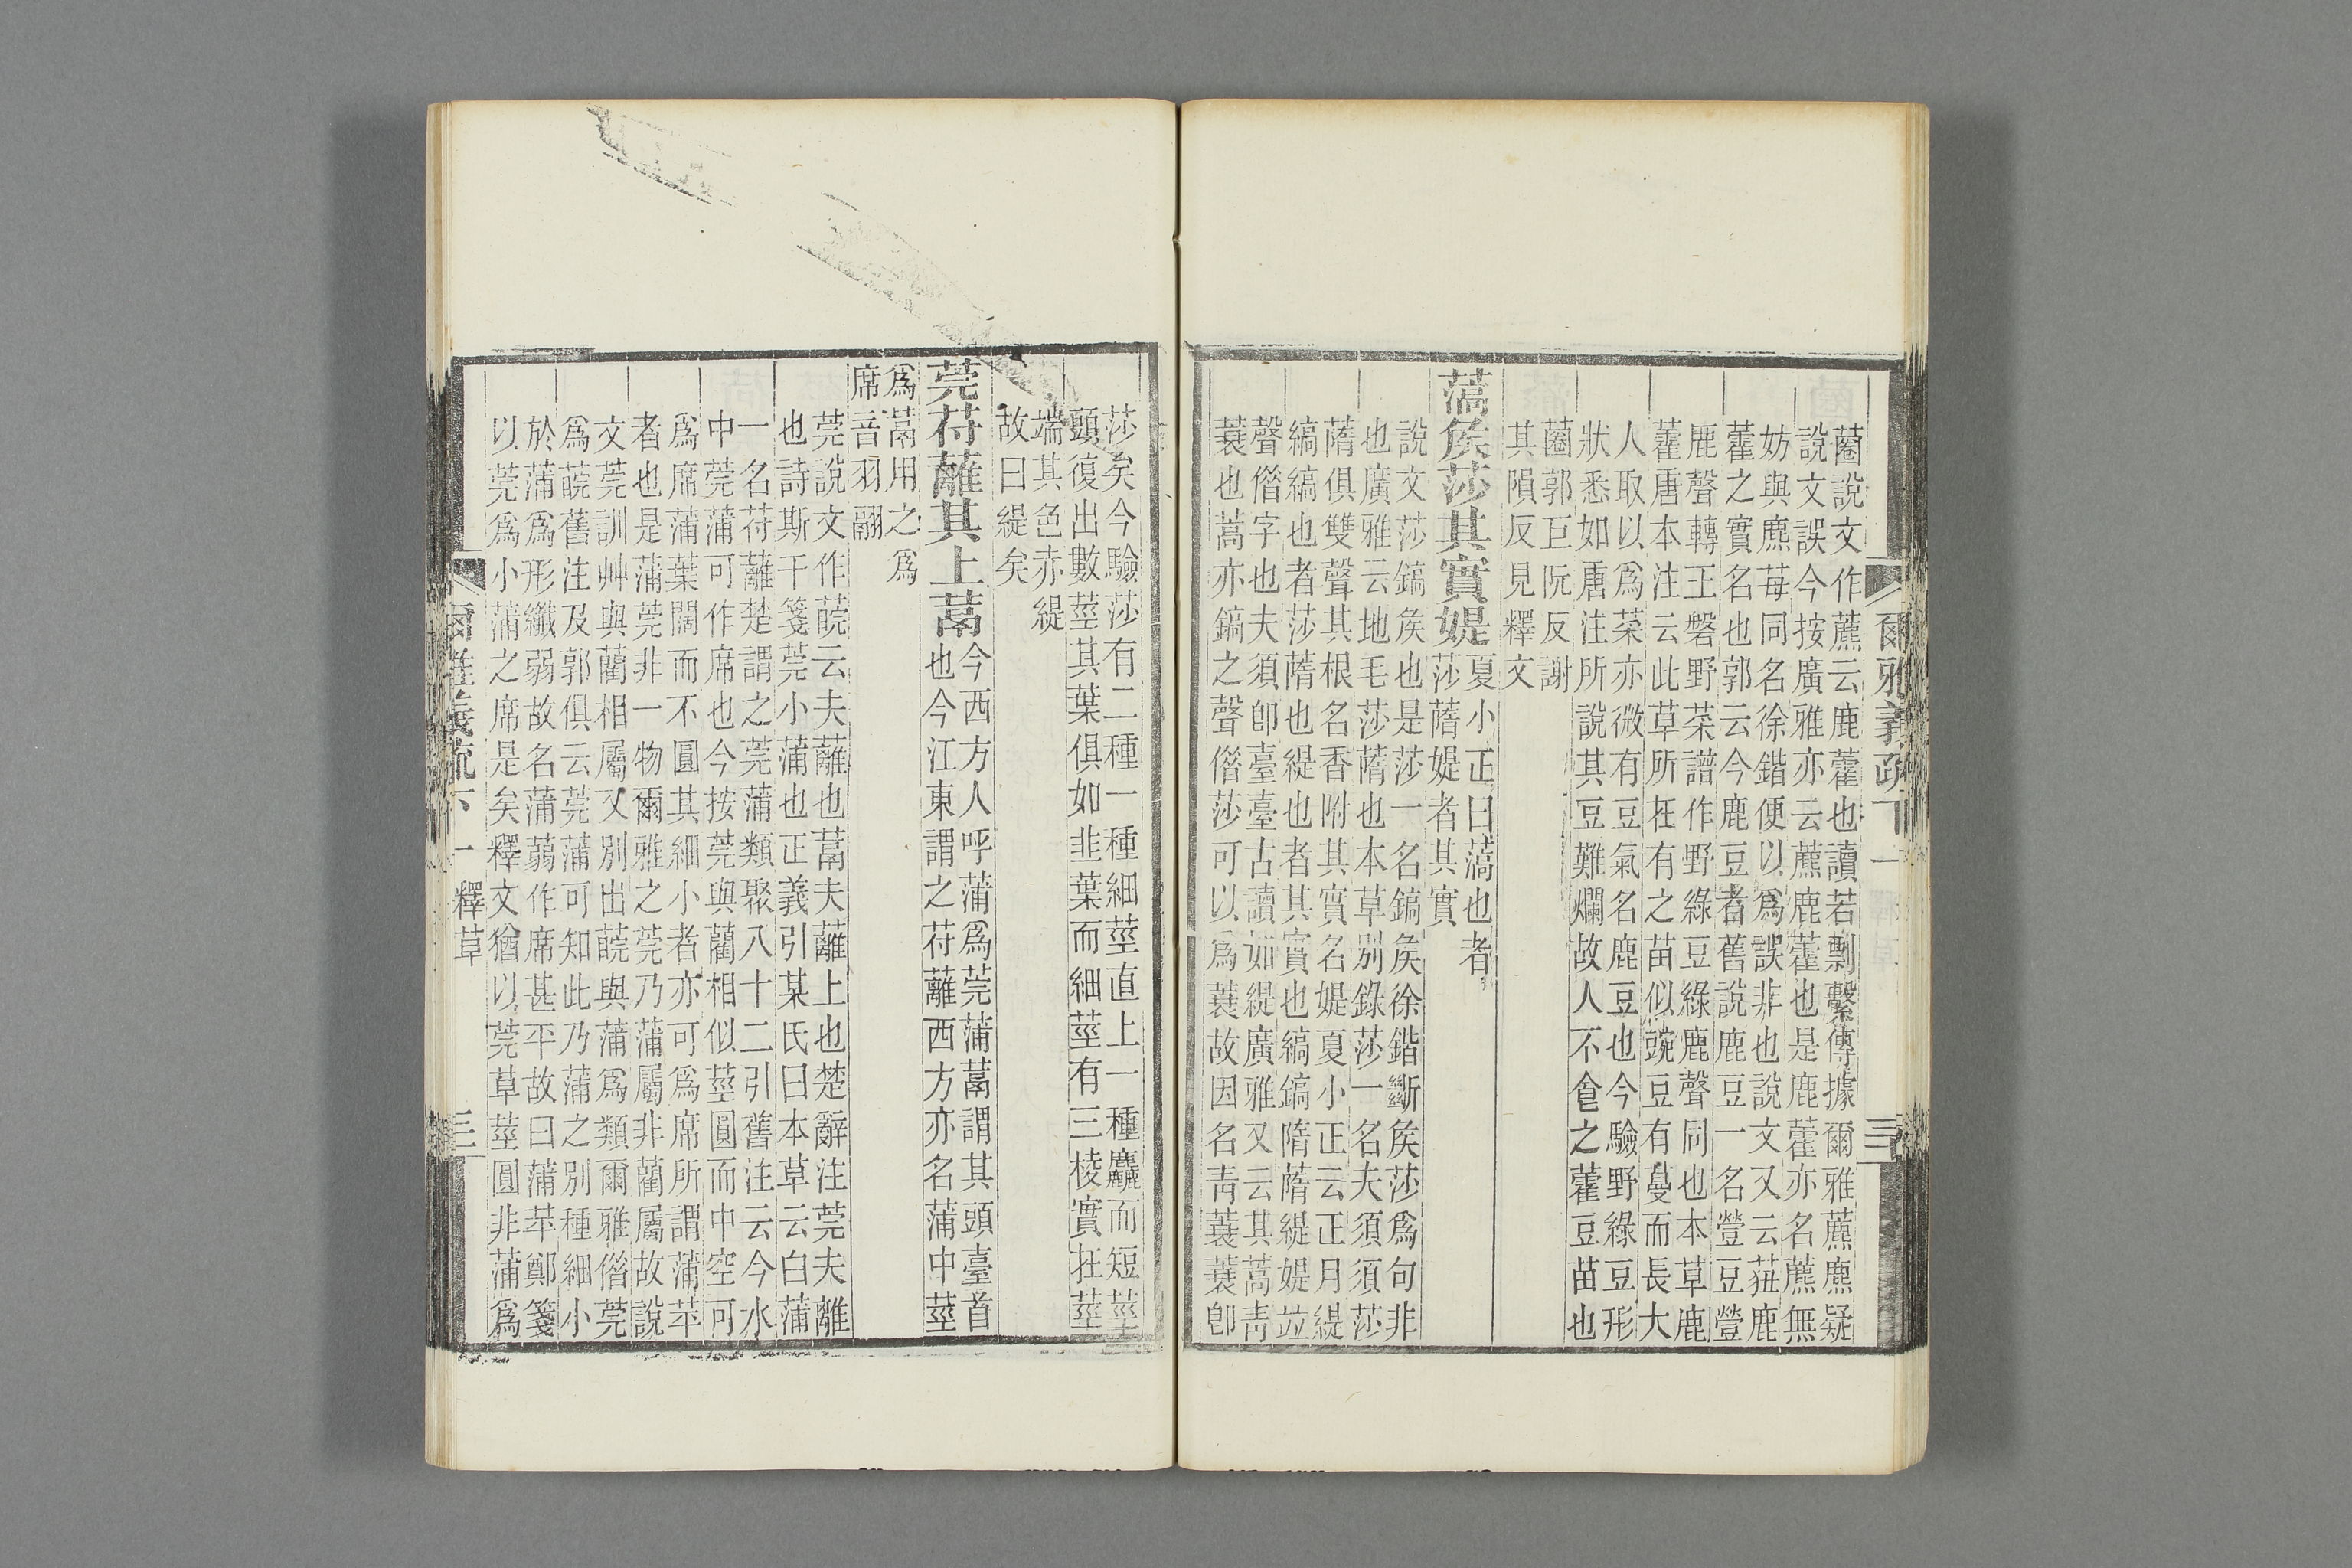 蔨說文作藨云鹿藿也讀若剽繫傳據爾雅藨麃疑
說文誤今按廣雅亦云藨鹿藿也是鹿藿亦名藨無
妨與麃莓同名徐鍇便以爲誤非也說文又云莥鹿
藿之實名也郭云今鹿豆者舊說鹿豆一名䝁豆䝁
鹿聲轉王磐野菜譜作野綠豆綠鹿聲同也本草鹿
藿唐本注云此草所在有之苗似豌豆有蔓而長大
人取以爲菜亦微有豆氣名鹿豆也今驗野綠豆形
狀悉如唐注所說其豆難爛故人不食之藿豆苗也
蔨郭巨阮反謝
其隕反見釋文
薃侯莎其實媞
夏小正曰薃也者
莎蓨媞者其實
說文莎鎬矦也是莎一名鎬矦徐鍇斷矦莎爲句非
也廣雅云地毛莎蓨也本草別錄莎一名夫須須莎
蓨俱雙聲其根名香附其實名媞夏小正云正月緹
縞縞也者莎蓨也緹也者其實也縞鎬隋蓨緹媞竝
聲借字也夫須卽臺臺古讀如緹廣雅又云其蒿靑
蓑也蒿亦鎬之聲借莎可以爲蓑故因名靑蓑蓑卽
爾雅義疏下一
三
莎矣今驗莎有二種一種細莖直上一種麤而短莖
頭復出數莖其葉俱如韭葉而細莖有三棱實在莖
端其色赤緹
故曰緹矣
莞苻蘺其上蒚
今西方人呼蒲爲莞蒲蒚謂其頭臺首
也今江東謂之苻蘺西方亦名蒲中莖
爲蒚用之爲
席音羽翮
莞說文作䕠云夫蘺也蒚夫蘺上也楚辭注莞夫離
也詩斯干箋莞小蒲也正義引某氏曰本草云白蒲
一名苻蘺楚謂之莞蒲類聚八十二引舊注云今水
中莞蒲可作席也今按莞與藺相似莖圓而中空可
爲席蒲葉闊而不圓其細小者亦可爲席所謂蒲苹
者也是蒲莞非一物爾雅之莞乃蒲屬非藺屬故說
文莞訓艸與藺相屬又別出䕠與蒲爲類爾雅借莞
爲䕠舊注及郭俱云莞蒲可知此乃蒲之別種細小
於蒲爲形纖弱故名蒲蒻作席甚平故曰蒲苹鄭箋
以莞爲小蒲之席是矣釋文猶以莞草莖圓非蒲爲
爾雅義疏下一 釋草
三